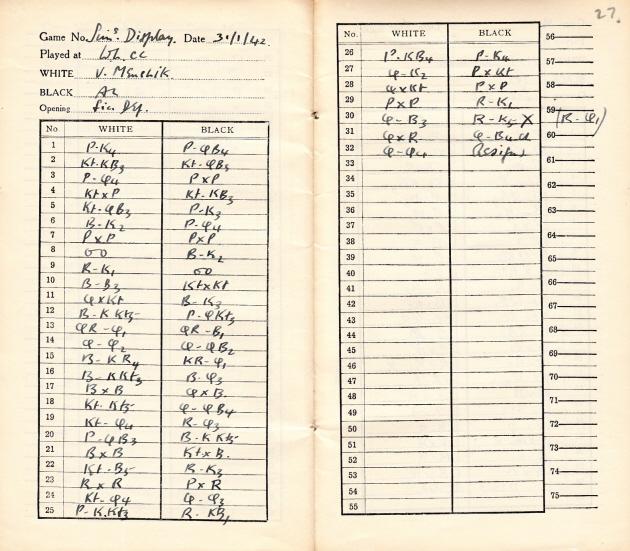 27.
Game No. Sim. Display. Date 31/1/42.
Played at W.L. CC
WHITE V. Menchik
BLACK
Opening Sic. Def.
No WHITE BLACK
1 P-K4 P-QB4
2 Kt-KB3 Kt-QB3
3 P-Q4 P x P
4 Kt x P Kt-KB3
5 Kt-QB3 P-K3
6 B-K2 P-Q4
7 P x P P x P
8 OO B-K2
9 R-K1 OO
10 B-B3 Kt x Kt
11 Q x Kt B-K3
12 B-KKt5 P-QKt3
13 QR-Q1 QR-B1
14 Q-Q2 Q-QB2
15 B-KR4 KR-Q1
16 B-KKt3 B-Q3
17 B x B Q x B
18 Kt-Kt5 Q-QB4
19 Kt-Q4 R-Q3
20 P-QB3 B-KKt5
21 B x B Kt x B.
22 Kt-B5 R-K3
23 R x R P x R
24 Kt-Q4 Q-Q3
25 P-KKt3 R-KB1
No. WHITE BLACK
26 P-KB4 P-K4
27 Q-K2 P x Kt
28 Q x Kt P x P
29 P x P R-K1
30 Q-B3 R-K5 X (R-Q1)
31 Q x R Q-B4ch
32 Q-Q4 Resigns
33
34
35
36
37
38
39
40
41
42
43
44
45
46
47
48
49
50
51
52
53
54
55
56
57
58
59
60
62
63
64
65
66
67
68
69
70
71
72
73
74
75